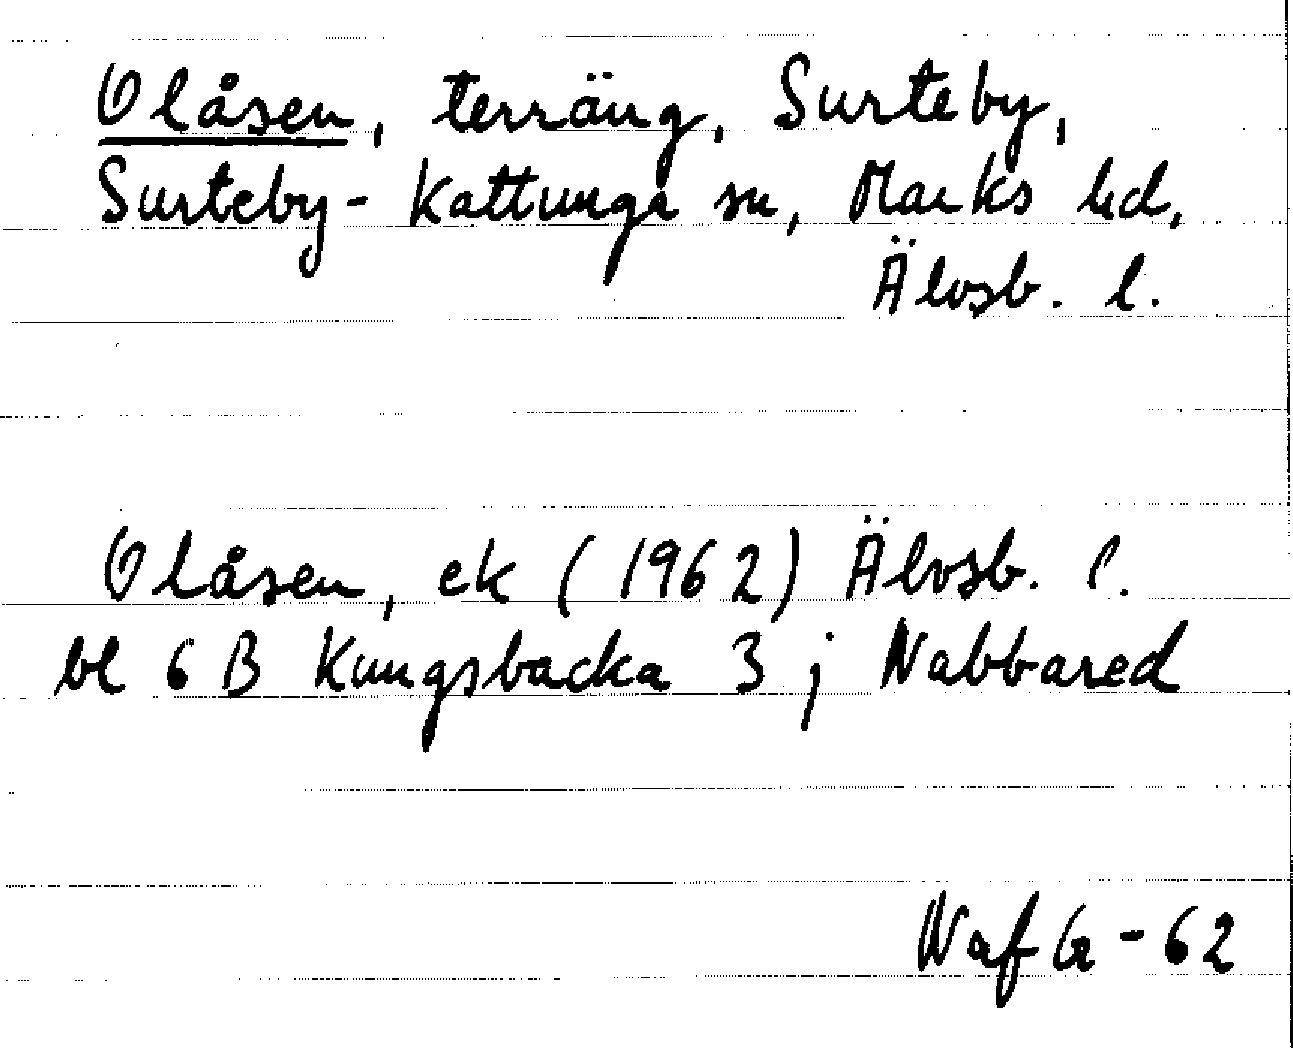 Olåsen, terräng, Surteby,
Surteby-Kattunga sn, Marks hd,
Älvsb. l.
Olåsen, ek (1962) Älvsb. l.
bl 6 B Kungsbacka 3 j Nabbared
Naf G-62